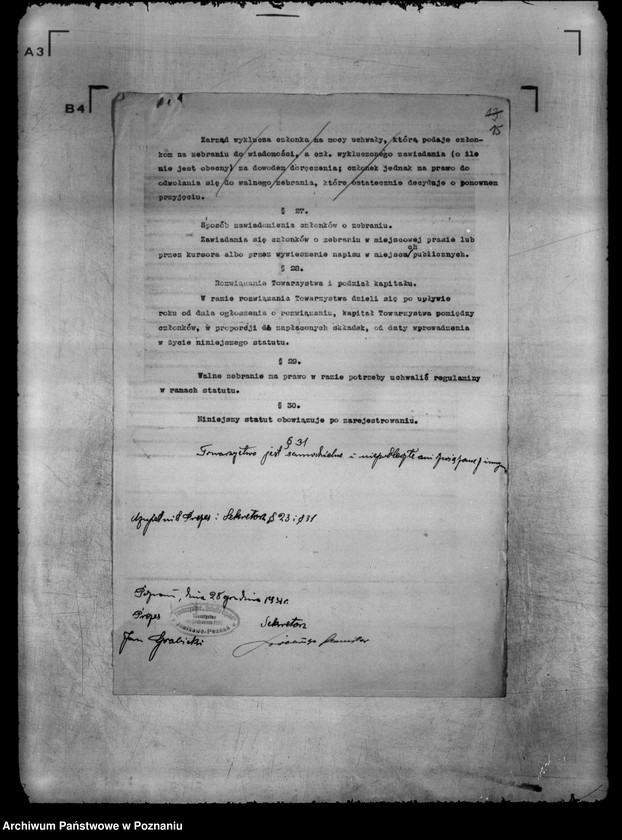 A3
B4
13
15
Zarząd wyklucza członka na mocy uchwały, którą podaje człon-
kom na zebraniu do wiadomości, a czł. wykluczonego zawiadania (o ile
nie jest obecny) za dowodem doręczenia; członek jednak na prawo do
odwołania się do walnego zebrania, które ostatecznie decyduje o ponownem
przyjęciu.
§ 27.
Sposób zawiadomienia członków o zebraniu.
Zawiadania się członków o zebraniu w miejscowej prasie lub
przez kursora albo przez wywieszenie napisu w miejscach publicznych.
§ 28.
Rozwiązanie Towarzystwa i podział kapitału.
W razie rozwiązania Towarzystwa dzieli się po upływie
roku od dnia ogłoszenia o rozwiązaniu, kapitał Towarzystwa pomiędzy
członków, w proporcji do zapłaconych składek, od daty wprowadzenia
w życie niniejszego statutu.
§ 29.
Walne zebranie na prawo w razie potrzeby uchwalić regulaminy
w ramach statutu.
§ 30.
Niniejszy statut obowiązuje po zarejestrowaniu.
§ 31
Towarzystwo jest samodzielne i niepodległe ani
Uzupełnił Prezes i Sekretarz § 23 i § 31
Poznań, dnia 28 grudnia 1934 r.
Prezes
Sekretarz
Jan Grabicki
Archiwum Państwowe w Poznaniu